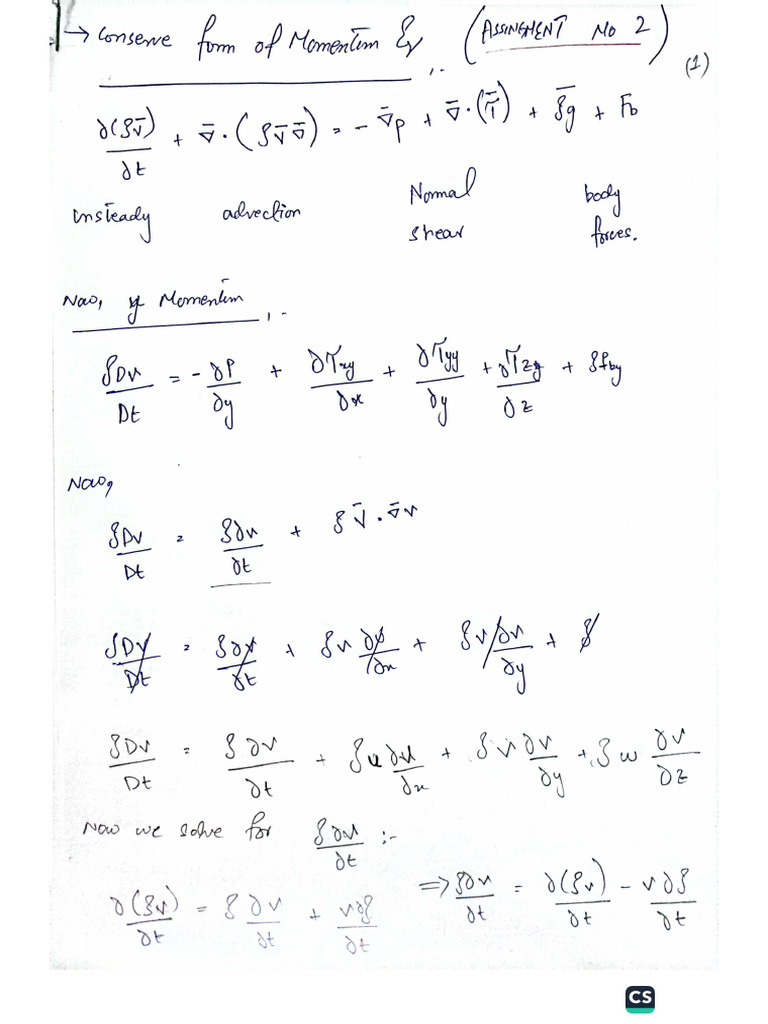 → Conserve form of Momentum Eq (ASSINGMENT No 2)
:- (1)
∂(ρV̄)/∂t + ∇̄·(ρV̄V̄) = -∇̄p + ∇̄·(τ̄) + ρḡ + Fb
Unsteady advection Normal shear body forces.
Now, y Momentum :-
ρDv/Dt = -∂P/∂y + ∂τxy/∂x + ∂τyy/∂y + ∂τzy/∂z + ρfby
Now,
ρDv/Dt = ρ∂v/∂t + ρV̄·∇̄v
ρDv/Dt = ρ∂v/∂t + ρu∂v/∂x + ρv∂v/∂y + ρw ∂v/∂z
Now we solve for ρ∂v/∂t :-
∂(ρv)/∂t = ρ∂v/∂t + v∂ρ/∂t ⇒ ρ∂v/∂t = ∂(ρv)/∂t - v∂ρ/∂t
CS